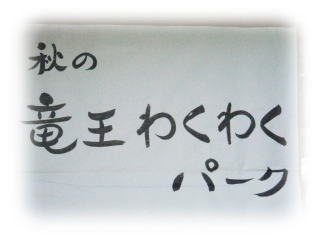 秋の
竜王わくわく
パーク